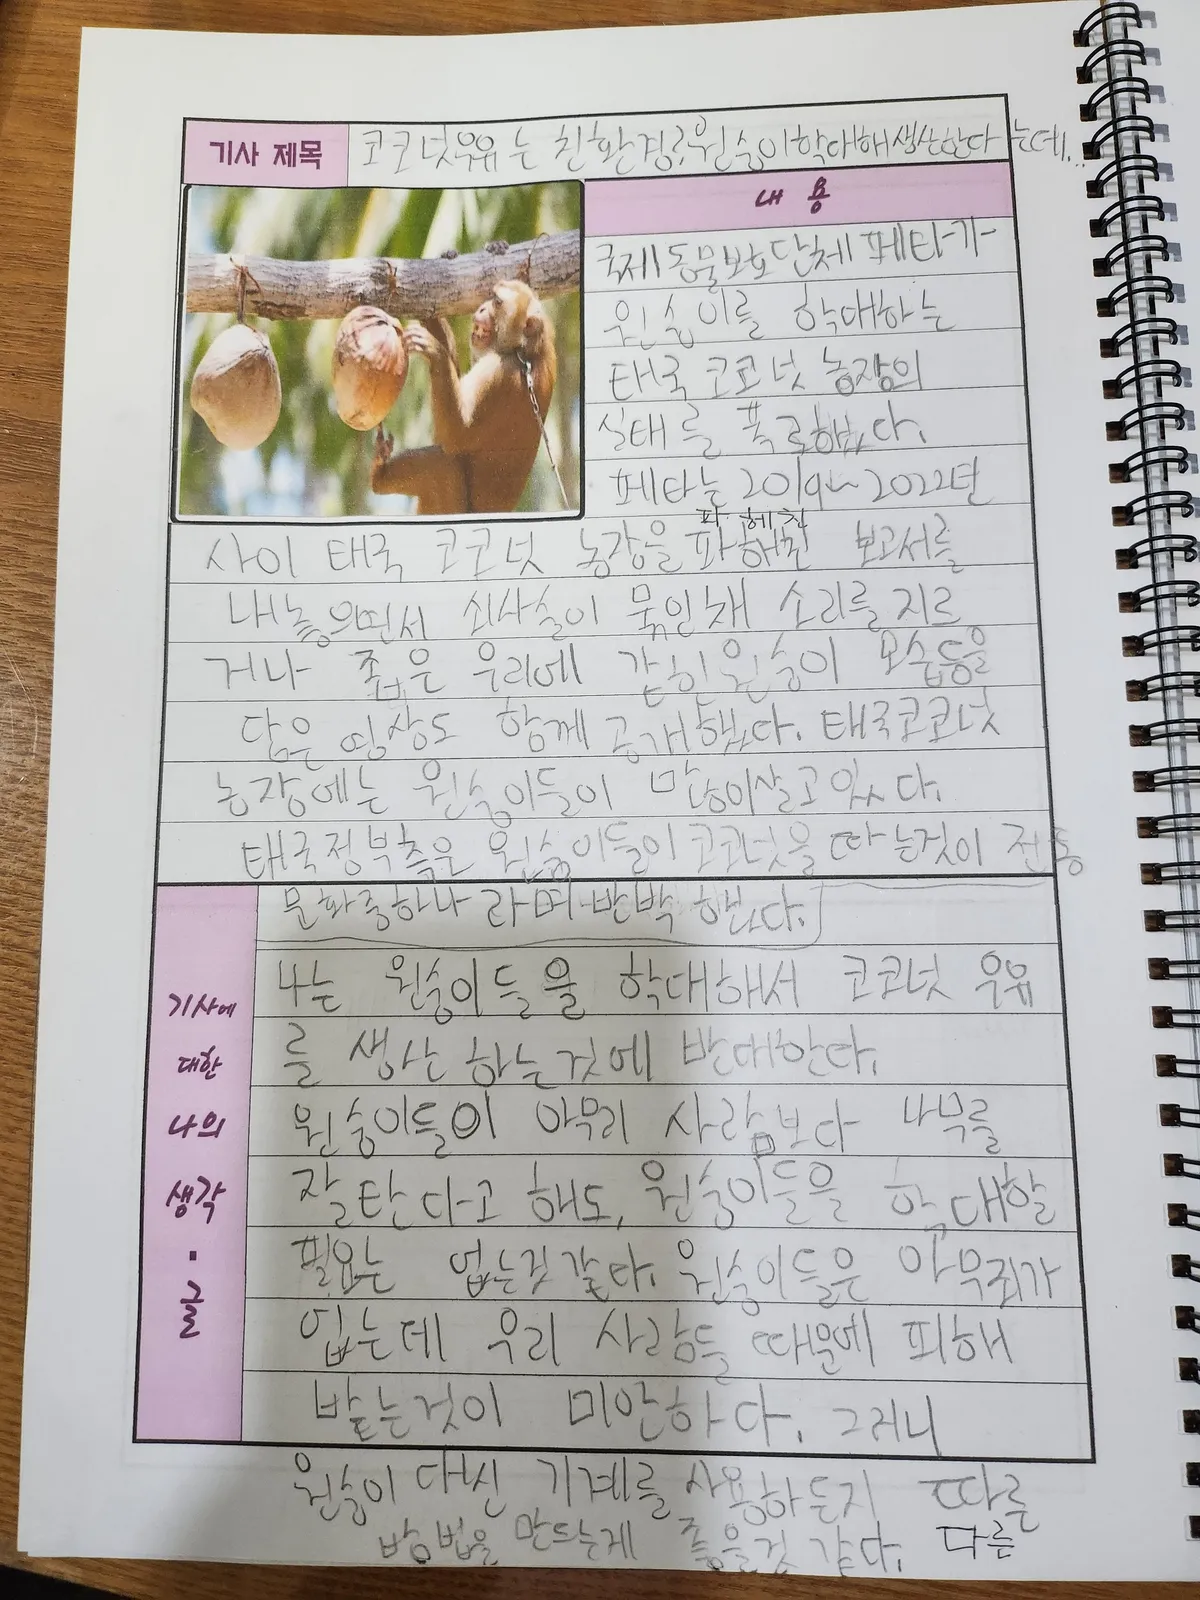 기사 제목
코코넛우유는 친환경?, 원숭이학대해생산한다는데...
내용
국제동물보호단체 페타가
원숭이를 학대하는
태국 코코넛 농장의
실태를 폭로했다.
페타는 2019~2022년
파헤친
사이 태국 코코넛 농장을 파해친 보고서를
내놓으면서 쇠사슬이 묶인채 소리를 지르
거나 좁은 우리에 갇힌원숭이 모습등을
담은 영상도 함께 공개했다. 태국코코넛
농장에는 원숭이들이 많이살고있다.
태국정부측은 원숭이들이코코넛을 따는것이 전통
문화중하나 라며 반박 했다.
기사에
대한
나의
생각
·
글
나는 원숭이들을 학대해서 코코넛 우유
를 생산 하는것에 반대한다.
원숭이들이 아무리 사람보다 나무를
잘탄다고 해도, 원숭이들을 학대할
필요는 없는것같다. 원숭이들은 아무죄가
없는데 우리 사람들 때문에 피해
받는것이 미안하다. 그러니
원숭이 대신 기계를 사용하든지 따른
방법을 만드는게 좋을것 같다. 다른